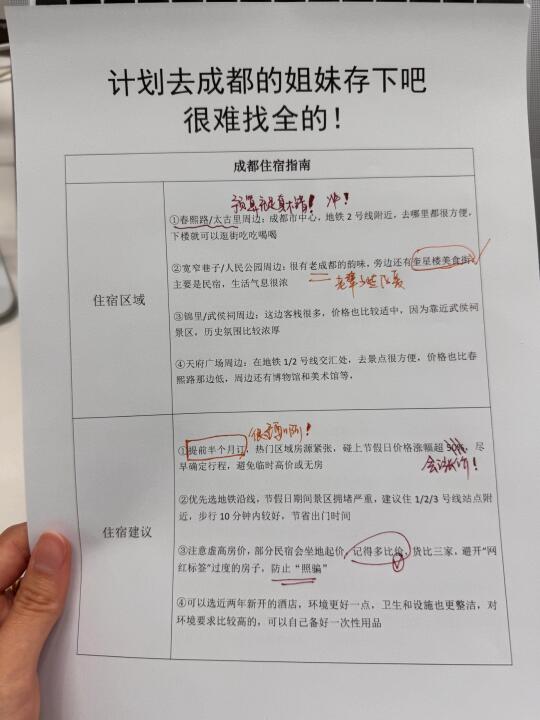 计划去成都的姐妹存下吧
很难找全的！
成都住宿指南
住宿区域
冲！
①春熙路/太古里周边：成都市中心，地铁 2 号线附近，去哪里都很方便，
下楼就可以逛街吃吃喝喝
②宽窄巷子/人民公园周边：很有老成都的韵味，旁边还有奎星楼美食街，
主要是民宿，生活气息很浓
③锦里/武侯祠周边：这边客栈很多，价格也比较适中，因为靠近武侯祠
景区，历史氛围比较浓厚
④天府广场周边：在地铁 1/2 号线交汇处，去景点很方便，价格也比春
熙路那边低，周边还有博物馆和美术馆等，
住宿建议
很重要啊！
①提前半个月订，热门区域房源紧张，碰上节假日价格涨幅超 50%，尽
早确定行程，避免临时高价或无房
会涨价！
②优先选地铁沿线，节假日期间景区拥堵严重，建议住 1/2/3 号线站点附
近，步行 10 分钟内较好，节省出门时间
③注意虚高房价，部分民宿会坐地起价，记得多比价，货比三家，避开“网
红标签”过度的房子，防止“照骗”
④可以选近两年新开的酒店，环境更好一点，卫生和设施也更整洁，对
环境要求比较高的，可以自己备好一次性用品